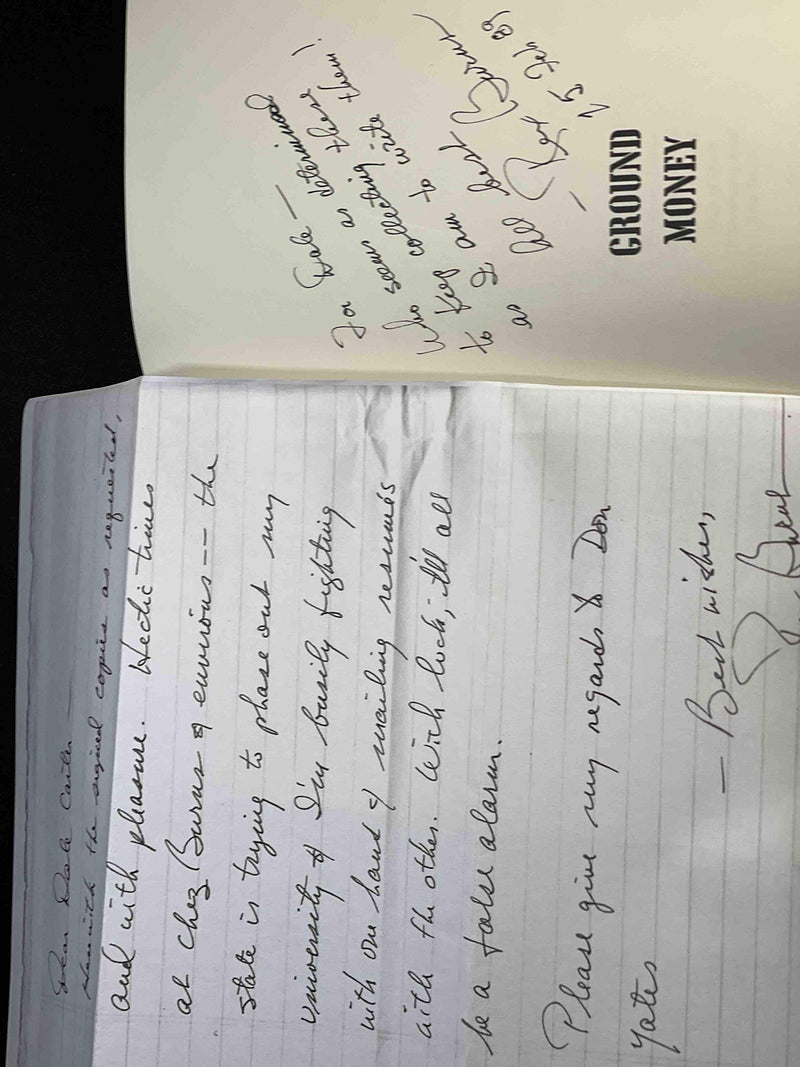 Dear Dale Carter —
Herewith the signed copies as requested,
and with pleasure. Hectic times
at chez Burns & environs -- the
state is trying to phase out my
university & I'm busily fighting
with one hand & mailing resumés
with the other. With luck, it'll all
be a false alarm.
Please give my regards to Don
Yates
— Best wishes,
Burns
For Dale —
who seems as determined
to keep collecting these
as I am to write them!
All best
— Rex Burns
GROUND
MONEY